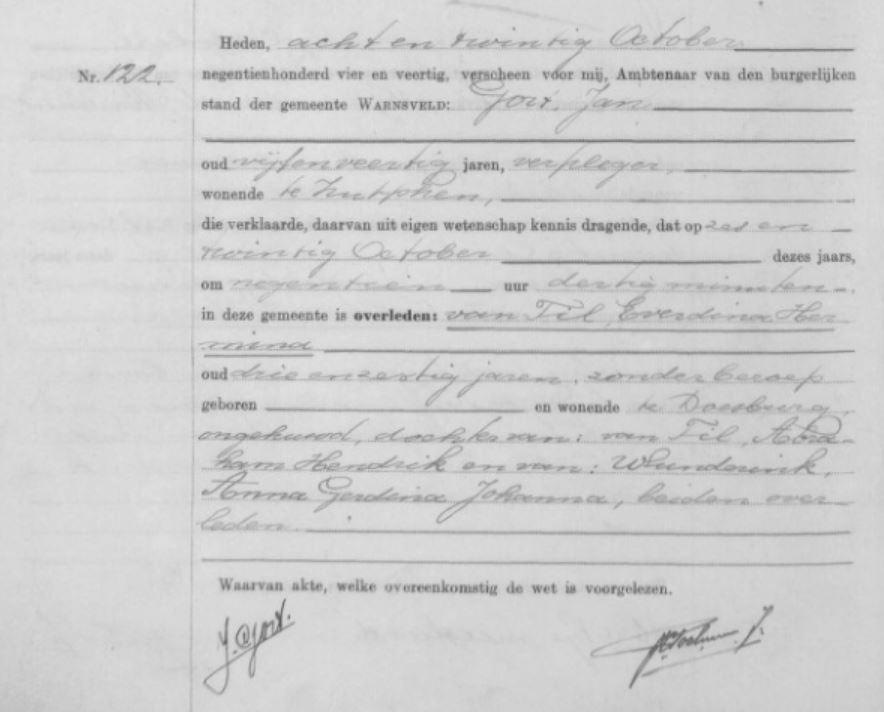 Heden, acht en twintig October
Nr. 122.- negentienhonderd vier en veertig, verscheen voor mij, Ambtenaar van den burgerlijken
stand der gemeente WARNSVELD: Jan
oud vijfenveertig jaren, verpleger,
wonende te Zutphen,
die verklaarde, daarvan uit eigen wetenschap kennis dragende, dat op zes en
twintig October dezes jaars,
om negentien uur dertig minuten
in deze gemeente is overleden: van Til, Everdina Her
mina
oud drie en zestig jaren, zonder beroep
geboren en wonende te Doesburg,
ongehuwd, dochter van: van Til, Abra-
ham Hendrik en van: Wunderink,
Anna Gerdina Johanna, beiden over
leden.
Waarvan akte, welke overeenkomstig de wet is voorgelezen.